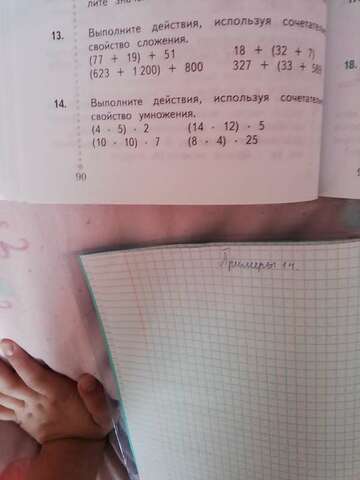 13. Выполните действия, используя
свойство сложения.
(77 + 19) + 51 18 + (32 + 7)
(623 + 1200) + 800 327 + (33 +
18.
14. Выполните действия, используя
свойство умножения.
(4 · 5) · 2 (14 · 12) · 5
(10 · 10) · 7 (8 · 4) · 25
90
Примеры 14.